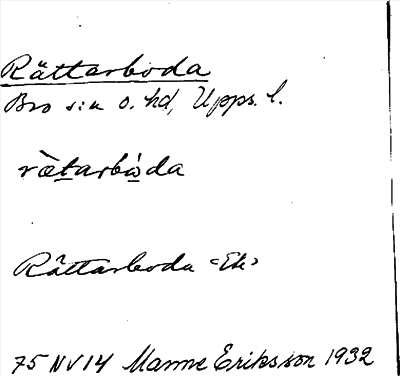 Rättarboda
Bro s:n o. hd, Upps. l.
rætarbòda
Rättarboda <Ek>
75 NV 14 Manne Eriksson 1932